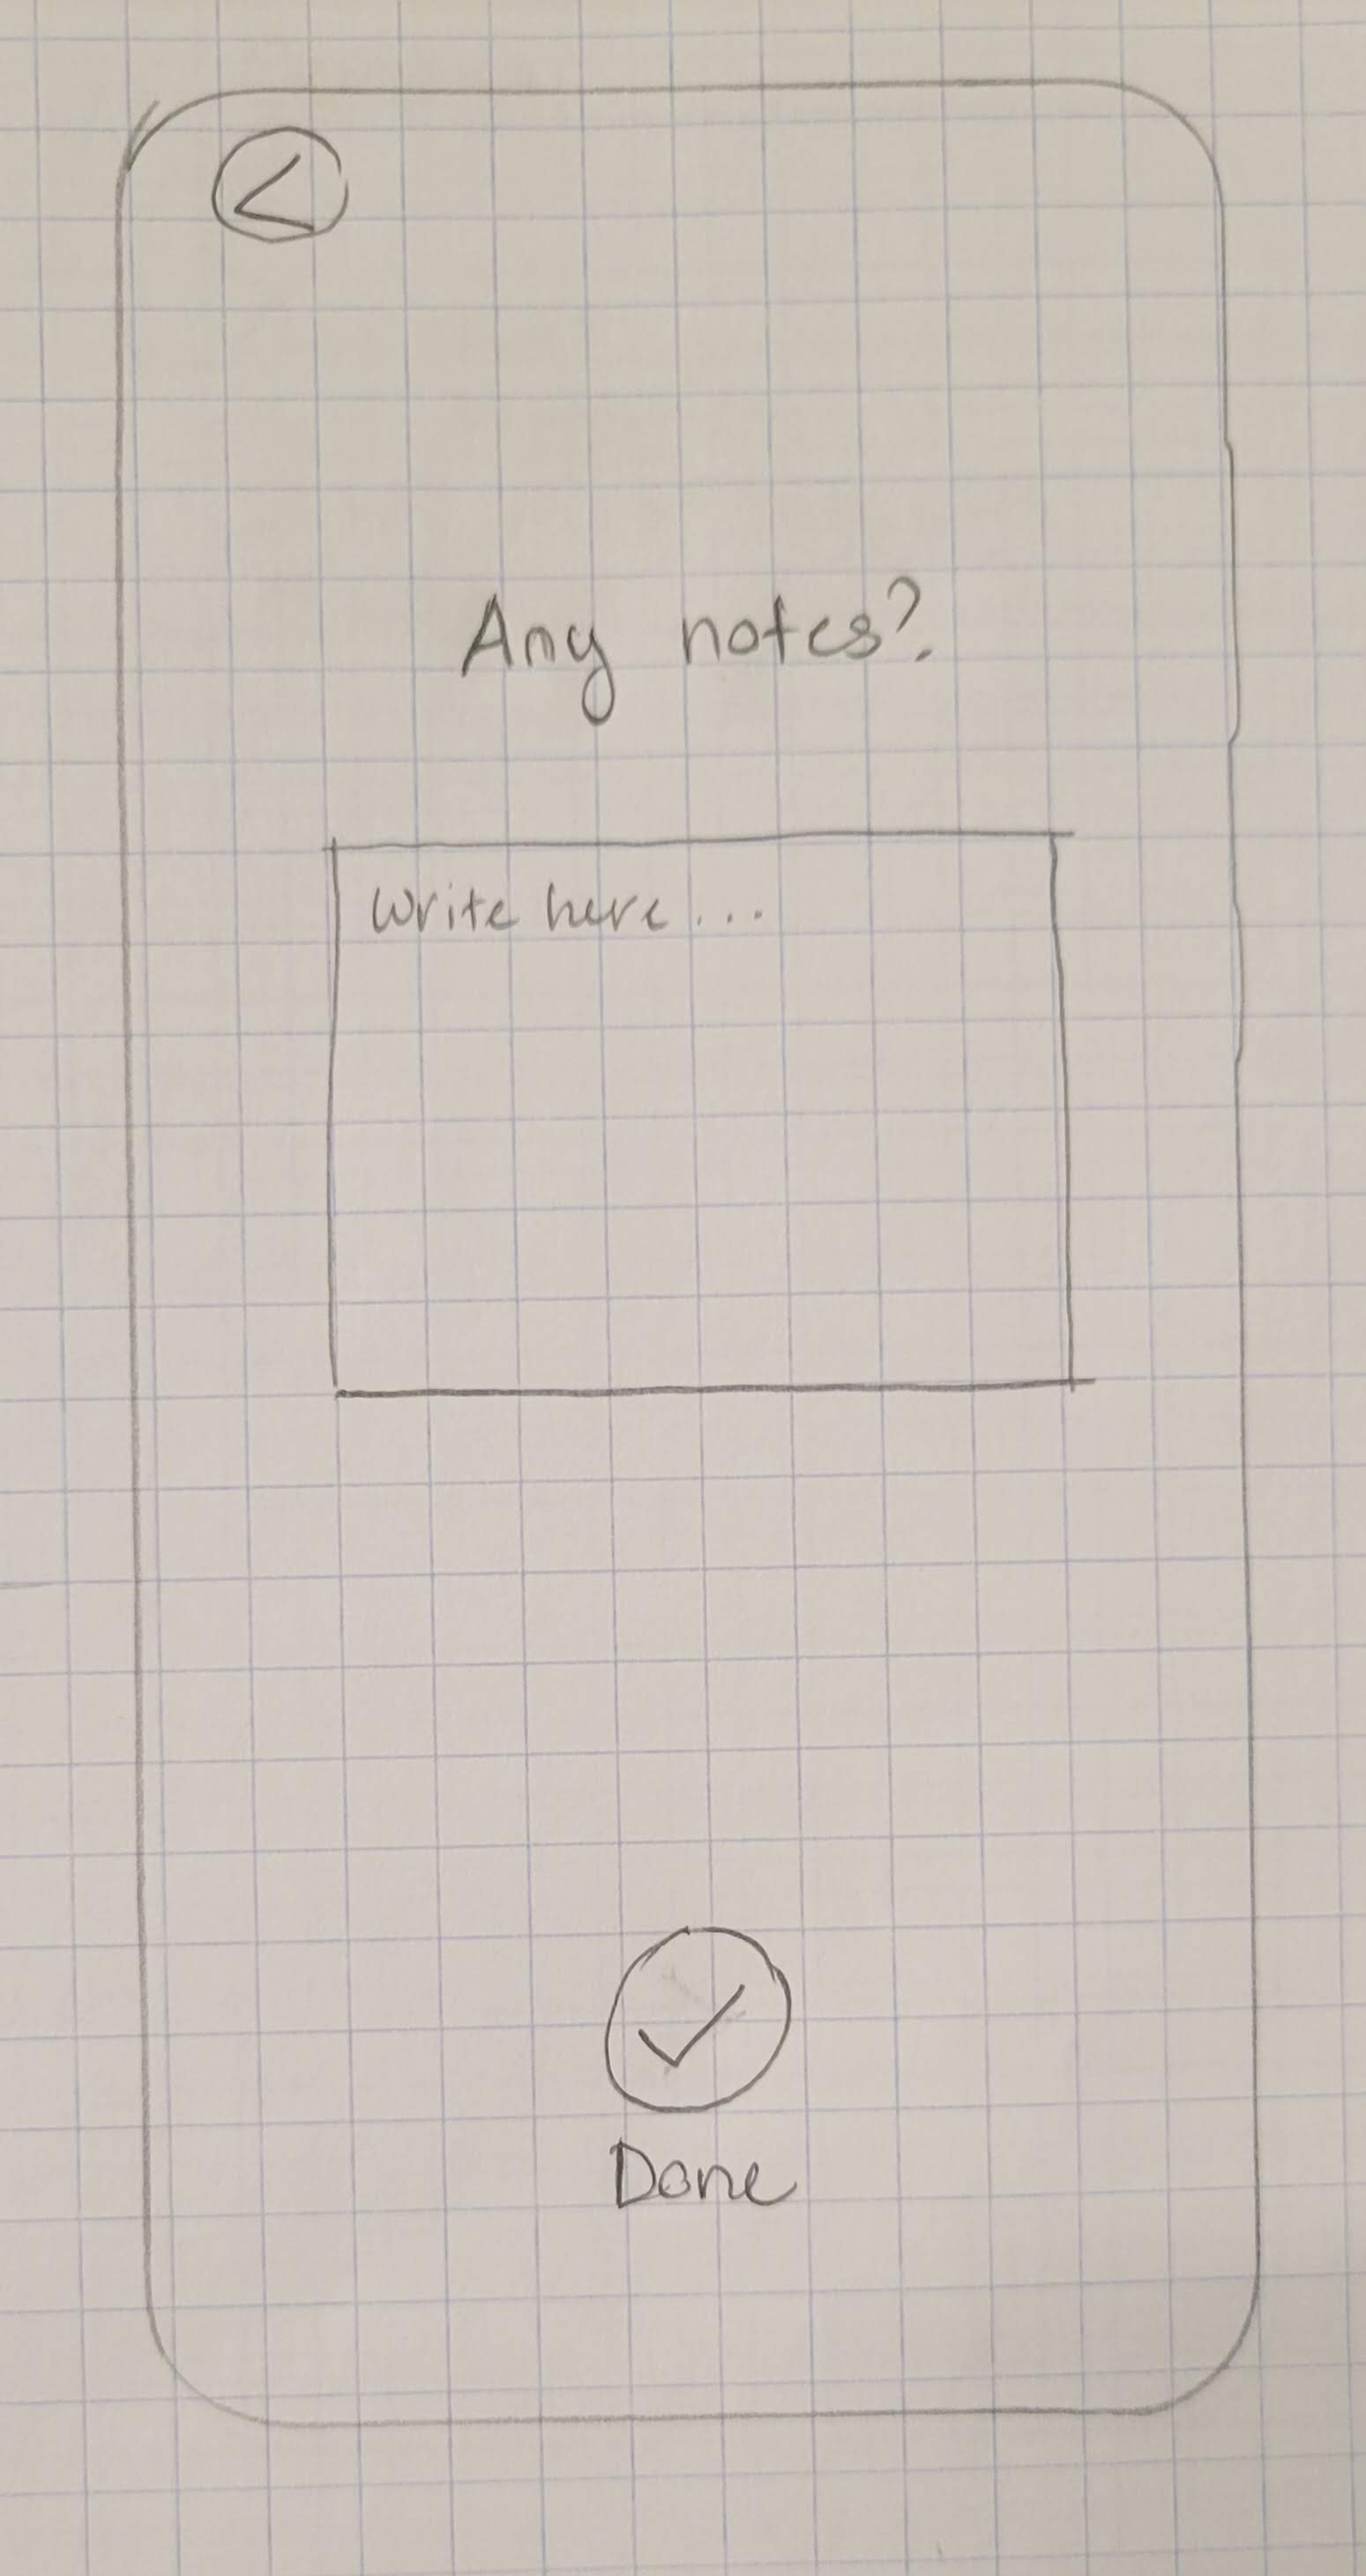 Any notes?
Write here...
Done